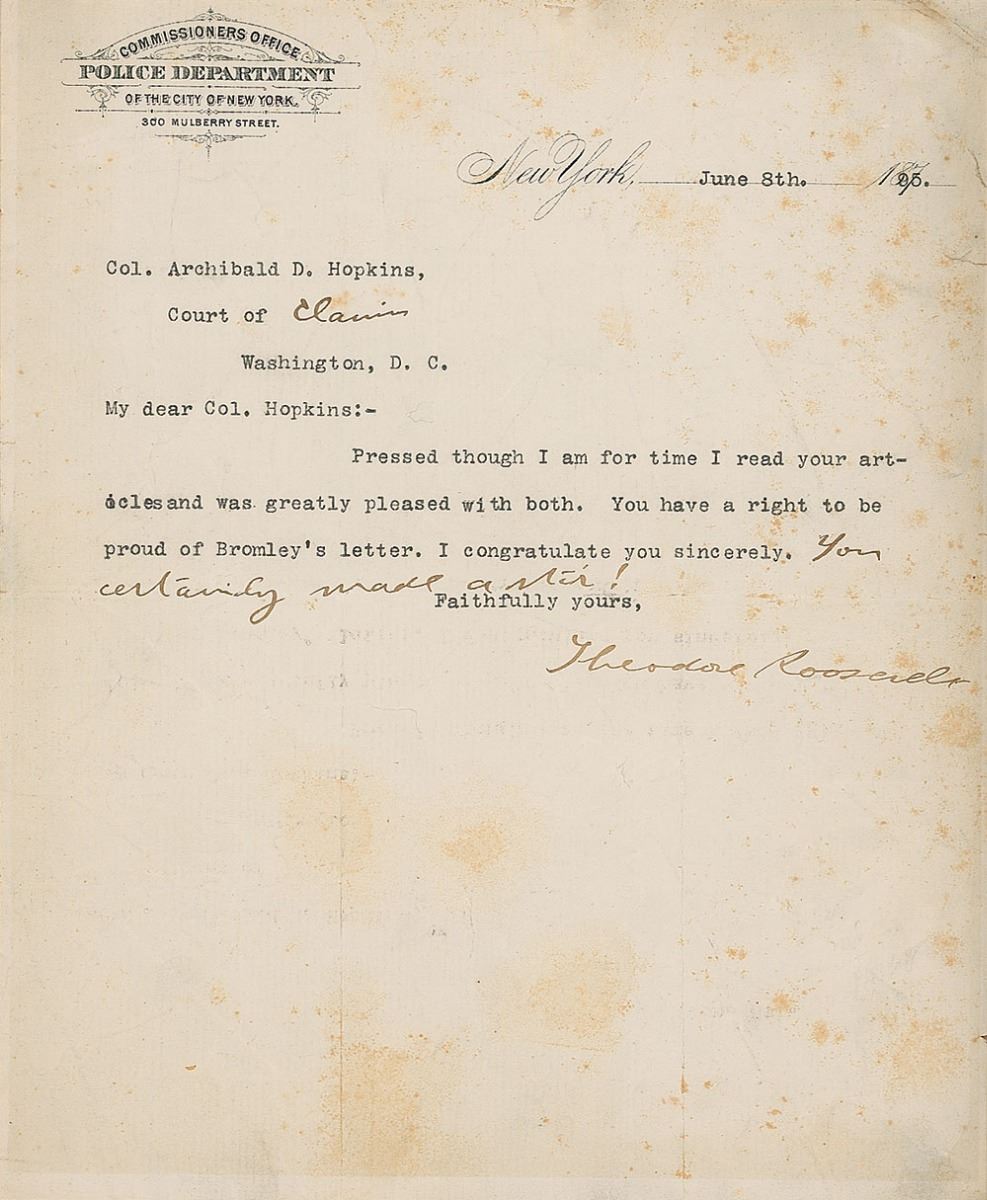 COMMISSIONERS OFFICE
POLICE DEPARTMENT
OF THE CITY OF NEW YORK.
300 MULBERRY STREET.
New York, June 8th. 1895.
Col. Archibald D. Hopkins,
Court of Claims
Washington, D. C.
My dear Col. Hopkins:-
Pressed though I am for time I read your art-
icles and was greatly pleased with both. You have a right to be
proud of Bromley's letter. I congratulate you sincerely. You
certainly made a stir!
Faithfully yours,
Theodore Roosevelt